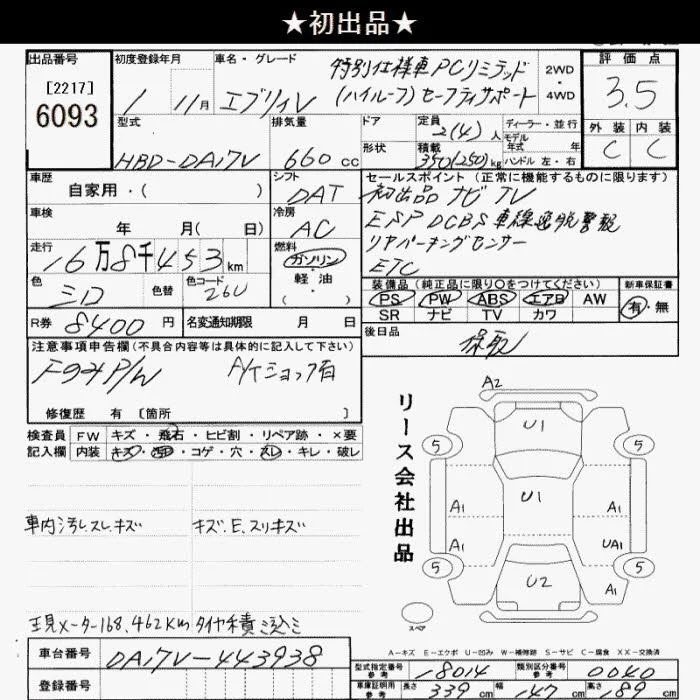 ★初出品★
出品番号
[2217]
6093
初度登録年月
1 11月
車名・グレード
エブリィV
特別仕様車PCリミテッド
(ハイルーフ)セーフティサポート
2WD
・
4WD
評価点
3.5
外装 内装
C C
型式
HBD-DA17V
排気量
660cc
ドア
形状
定員
2(4)人
積載
350(250)kg
ディーラー・並行
モデル
年式 年
ハンドル 左・右
車歴
自家用・( )
シフト
DAT
セールスポイント(正常に機能するものに限ります)
初出品 ナビ TV
ESP DCBS 車線逸脱警報
リヤパーキングセンサー
ETC
車検
年 月( 日)
冷房
AC
走行
16万8千453km
燃料
ガソリン
軽油
( )
色
シロ
色替
色コード
26U
装備品(純正品に限り○をつけてください)
PS PW ABS エアB AW
SR ナビ TV カワ
新車保証書
有・無
R券
8400円
名変通知期限 月 日
後日品
注意事項申告欄(不具合内容等は具体的に記入して下さい)
A/Tショック有
修復歴 有〔箇所 〕
検査員
記入欄
FW キズ・飛石・ヒビ割・リペア跡・×要
内装 キズ・汚れ・コゲ・穴・スレ・キレ・破レ
車内汚レ.スレ.キズ
キズ.E.スリキズ
現メーター168,462Km タイヤ積ミ込ミ
リース会社出品
A2
U1
5 5
A1 U1 A1
A1 UA1
5 5
U2
スペア
A-キズ E-エクボ U-凹み W-補修跡 S-サビ C-腐食 XX-交換済
車台番号
DA17V-443938
登録番号
型式指定番号
参考
18014
類別区分番号
参考
0040
車庫証明用
参考
長さ
339cm
幅
147cm
高さ
189cm